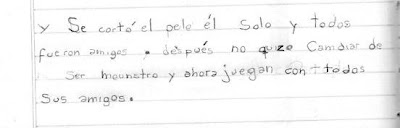 y Se cortó el pelo él Solo y todos
fueron amigos. después no quizo Camdiar de
Ser mounstro y ahora juegan con todos
Sus amigos.